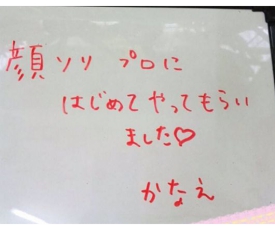 顔ソリ プロに
はじめて やってもらい
ました♡
かなえ